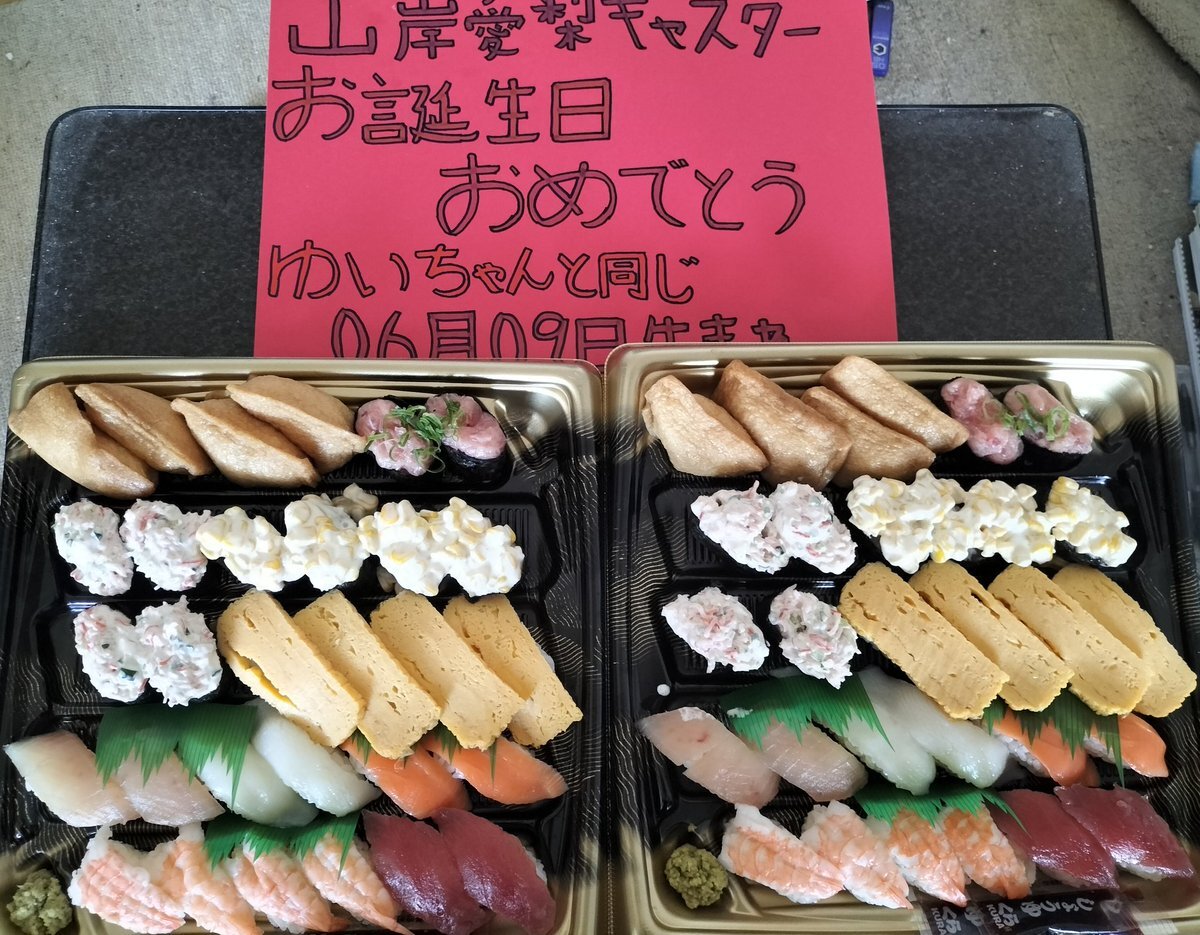 山岸愛梨キャスター
お誕生日
おめでとう
ゆいちゃんと同じ
06月09日生まれ
しょうゆ
くら
KURA